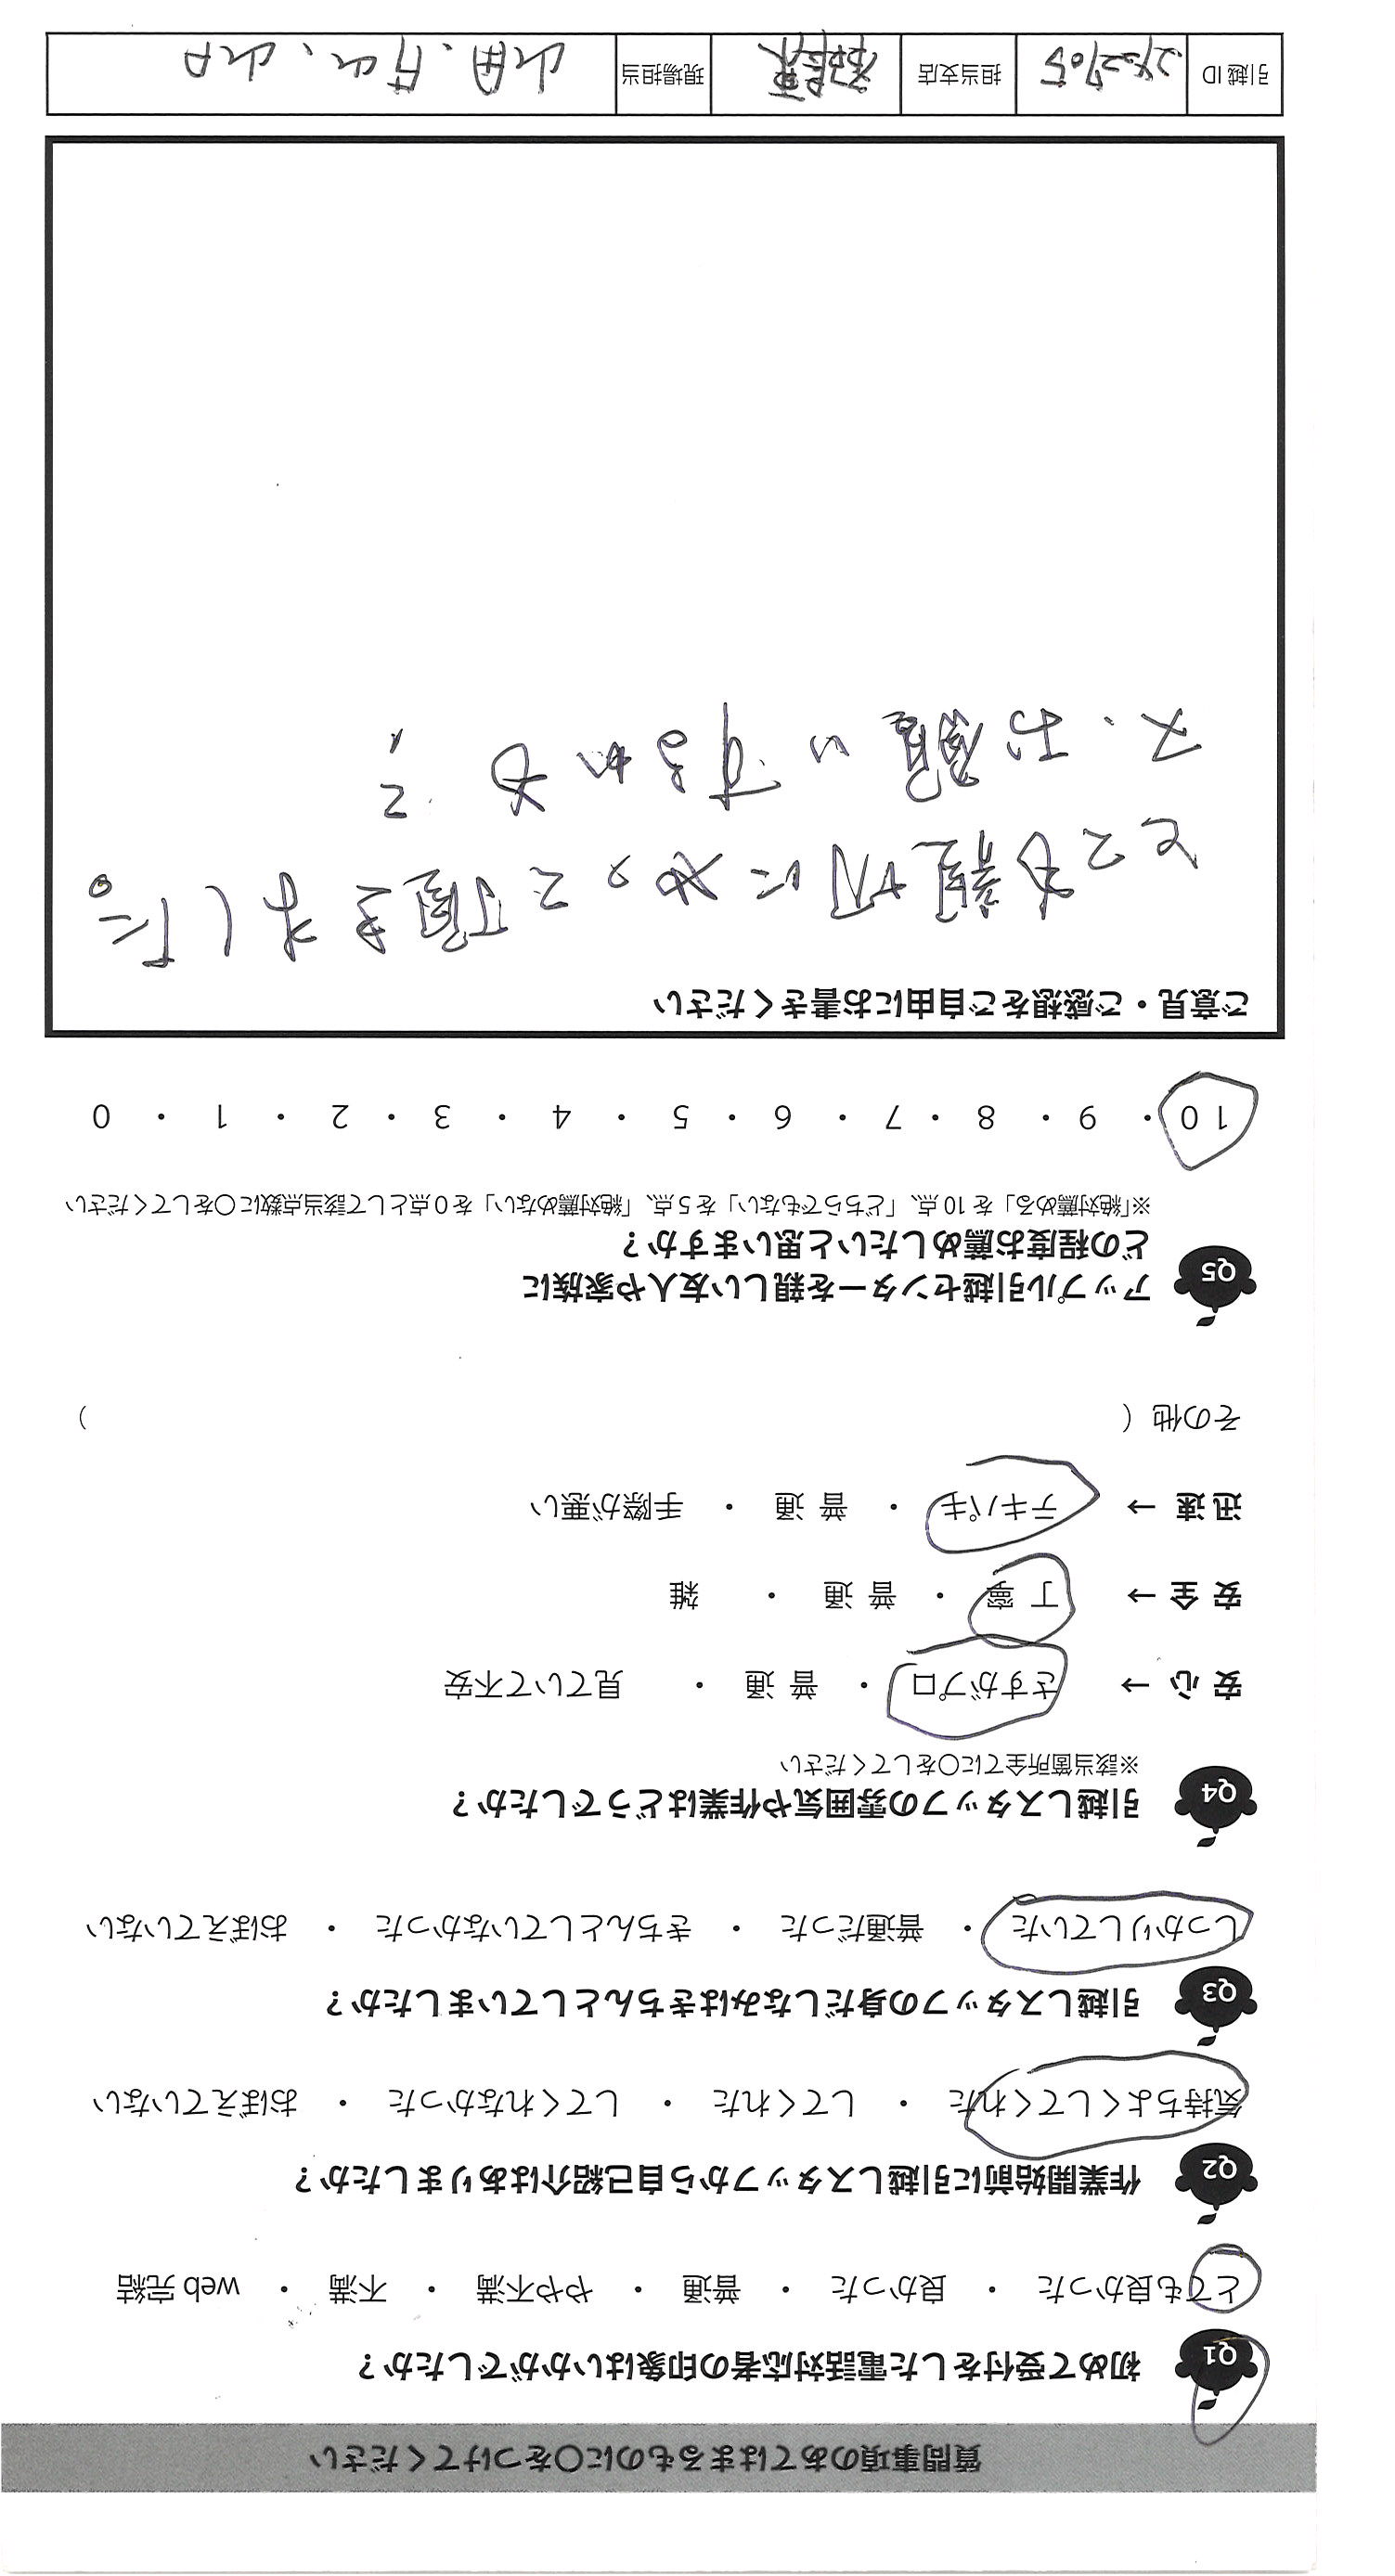 質問事項のあてはまるものに〇をつけてください
Q1 初めて受付をした電話対応者の印象はいかがでしたか？
とても良かった ・ 良かった ・ 普通 ・ やや不満 ・ 不満 ・ web 完結
Q2 作業開始前に引越しスタッフから自己紹介はありましたか？
気持ちよくしてくれた ・ してくれた ・ してくれなかった ・ おぼえていない
Q3 引越しスタッフの身だしなみはきちんとしていましたか？
しっかりしていた ・ 普通だった ・ きちんとしていなかった ・ おぼえていない
Q4 引越しスタッフの雰囲気や作業はどうでしたか？
※該当箇所全てに〇をしてください
安 心 → さすがプロ ・ 普 通 ・ 見ていて不安
安 全 → 丁 寧 ・ 普 通 ・ 雑
迅 速 → テキパキ ・ 普 通 ・ 手際が悪い
その他（ ）
Q5 アップル引越センターを親しい友人や家族に
どの程度お薦めしたいと思いますか？
※「絶対薦める」を 10 点、「どちらでもない」を 5 点、「絶対薦めない」を 0 点として該当点数に〇をしてください
10 ・ 9 ・ 8 ・ 7 ・ 6 ・ 5 ・ 4 ・ 3 ・ 2 ・ 1 ・ 0
ご意見・ご感想をご自由にお書きください
とても親切にやって頂きました。
又、お願いするかも
引越 ID 担当支店 現場担当 山田